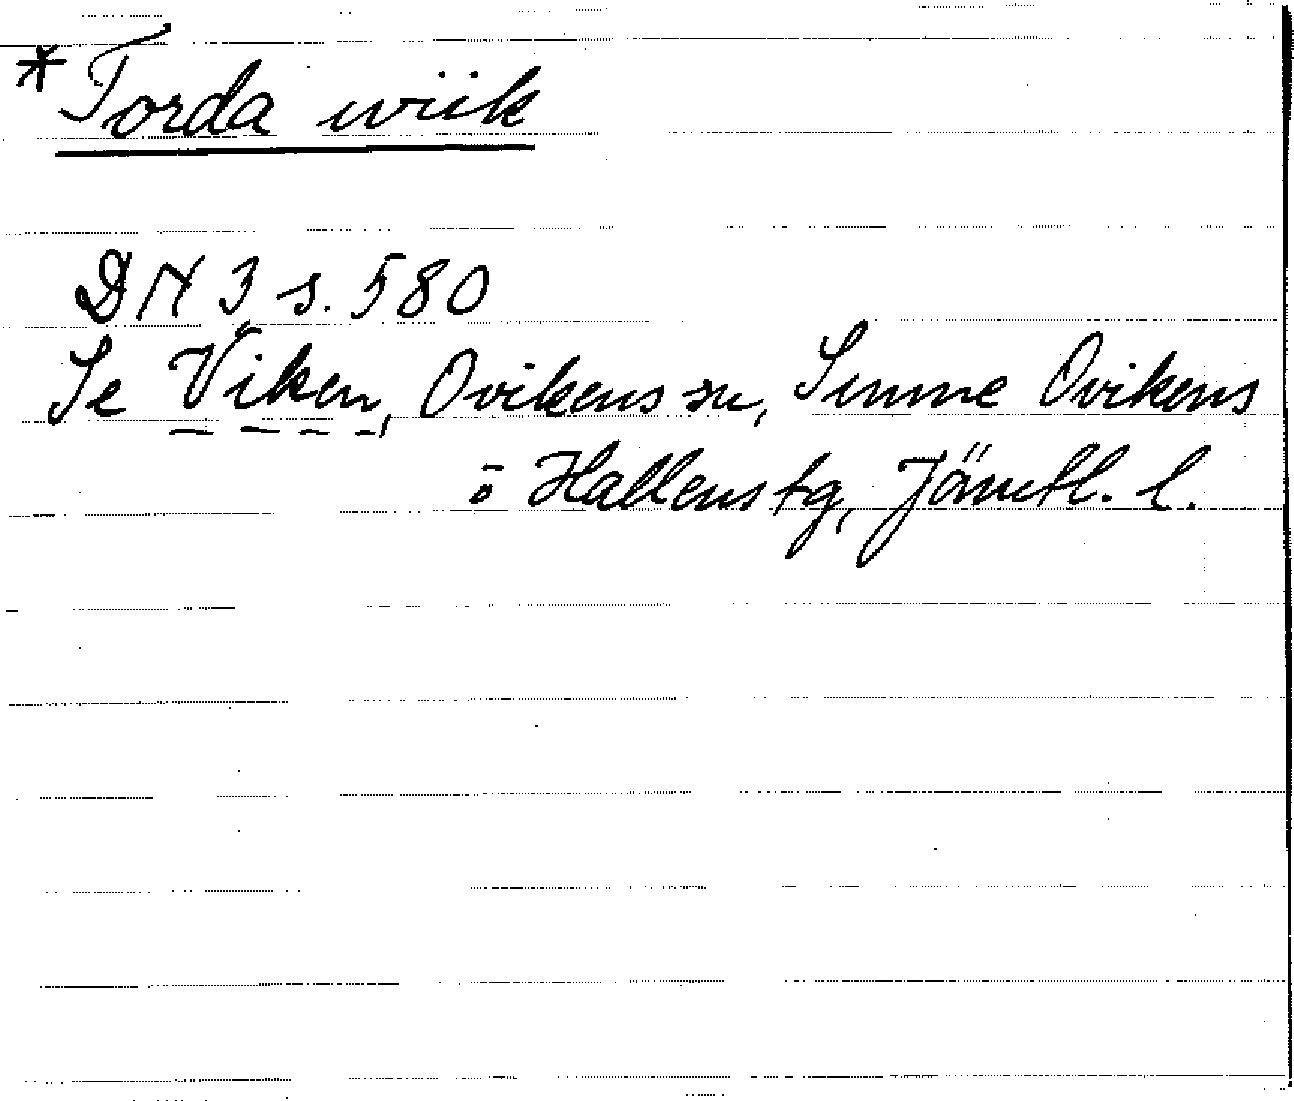 *Torda wiik
DN 3 s. 580
Se Viken, Ovikens sn, Sunne Ovikens
o Hallens tg, Jämtl. l.